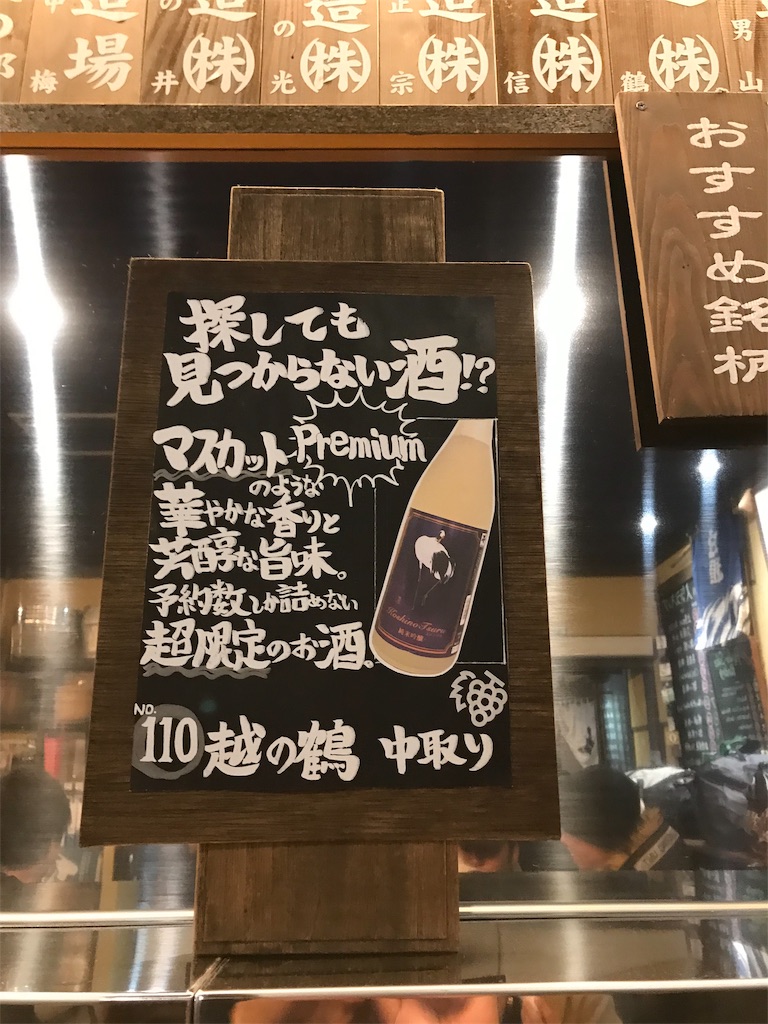 造 場 梅
の 井 ㈱
の 光 造 ㈱
正 宗 造 ㈱
信 造 ㈱
鶴 ㈱
男 山
おすすめ銘柄
探しても
見つからない酒!?
Premium
マスカット
のような
華やかな香りと
芳醇な旨味。
予約数しか詰めない
超限定のお酒。
Koshino Tsuru
純米吟醸
NO.
110 越の鶴 中取り